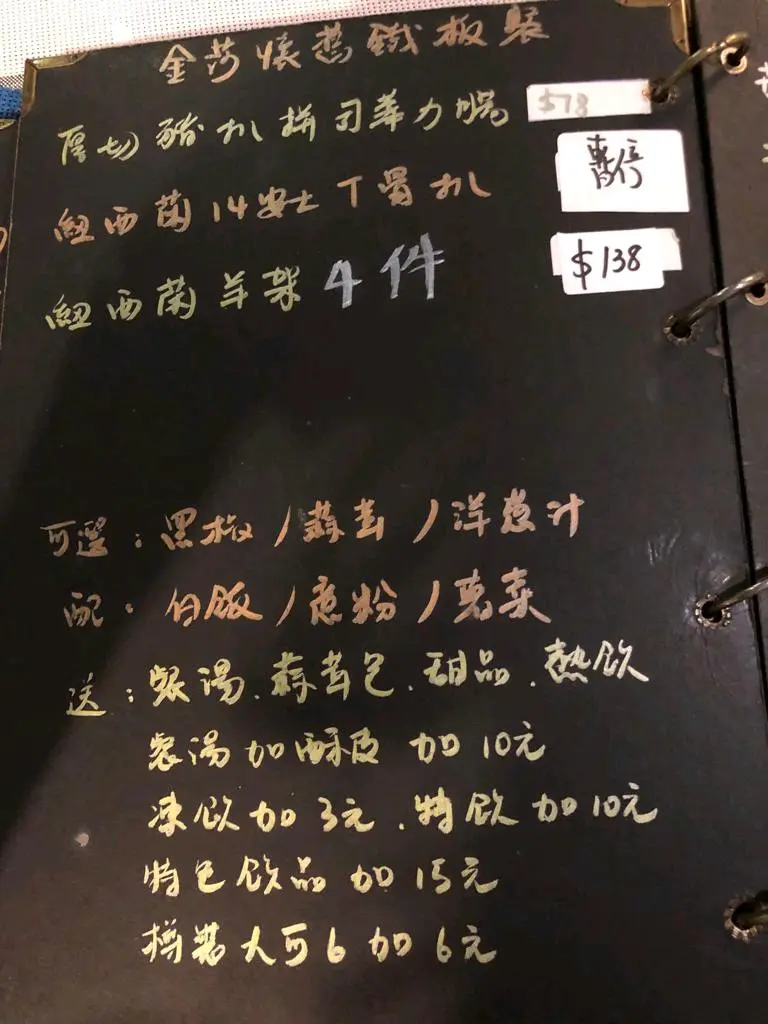 金莎懷舊鐵板餐
厚切豬扒拼司華力腸 $78
紐西蘭14安士T骨扒 暫停
紐西蘭羊架4件 $138
可選：黑椒/蒜茸/洋蔥汁
配：白飯/意粉/薯菜
送：餐湯、蒜茸包、甜品、熱飲
餐湯加酥皮 加10元
凍飲加3元、特飲加10元
特色飲品加15元
樽裝大可6加6元